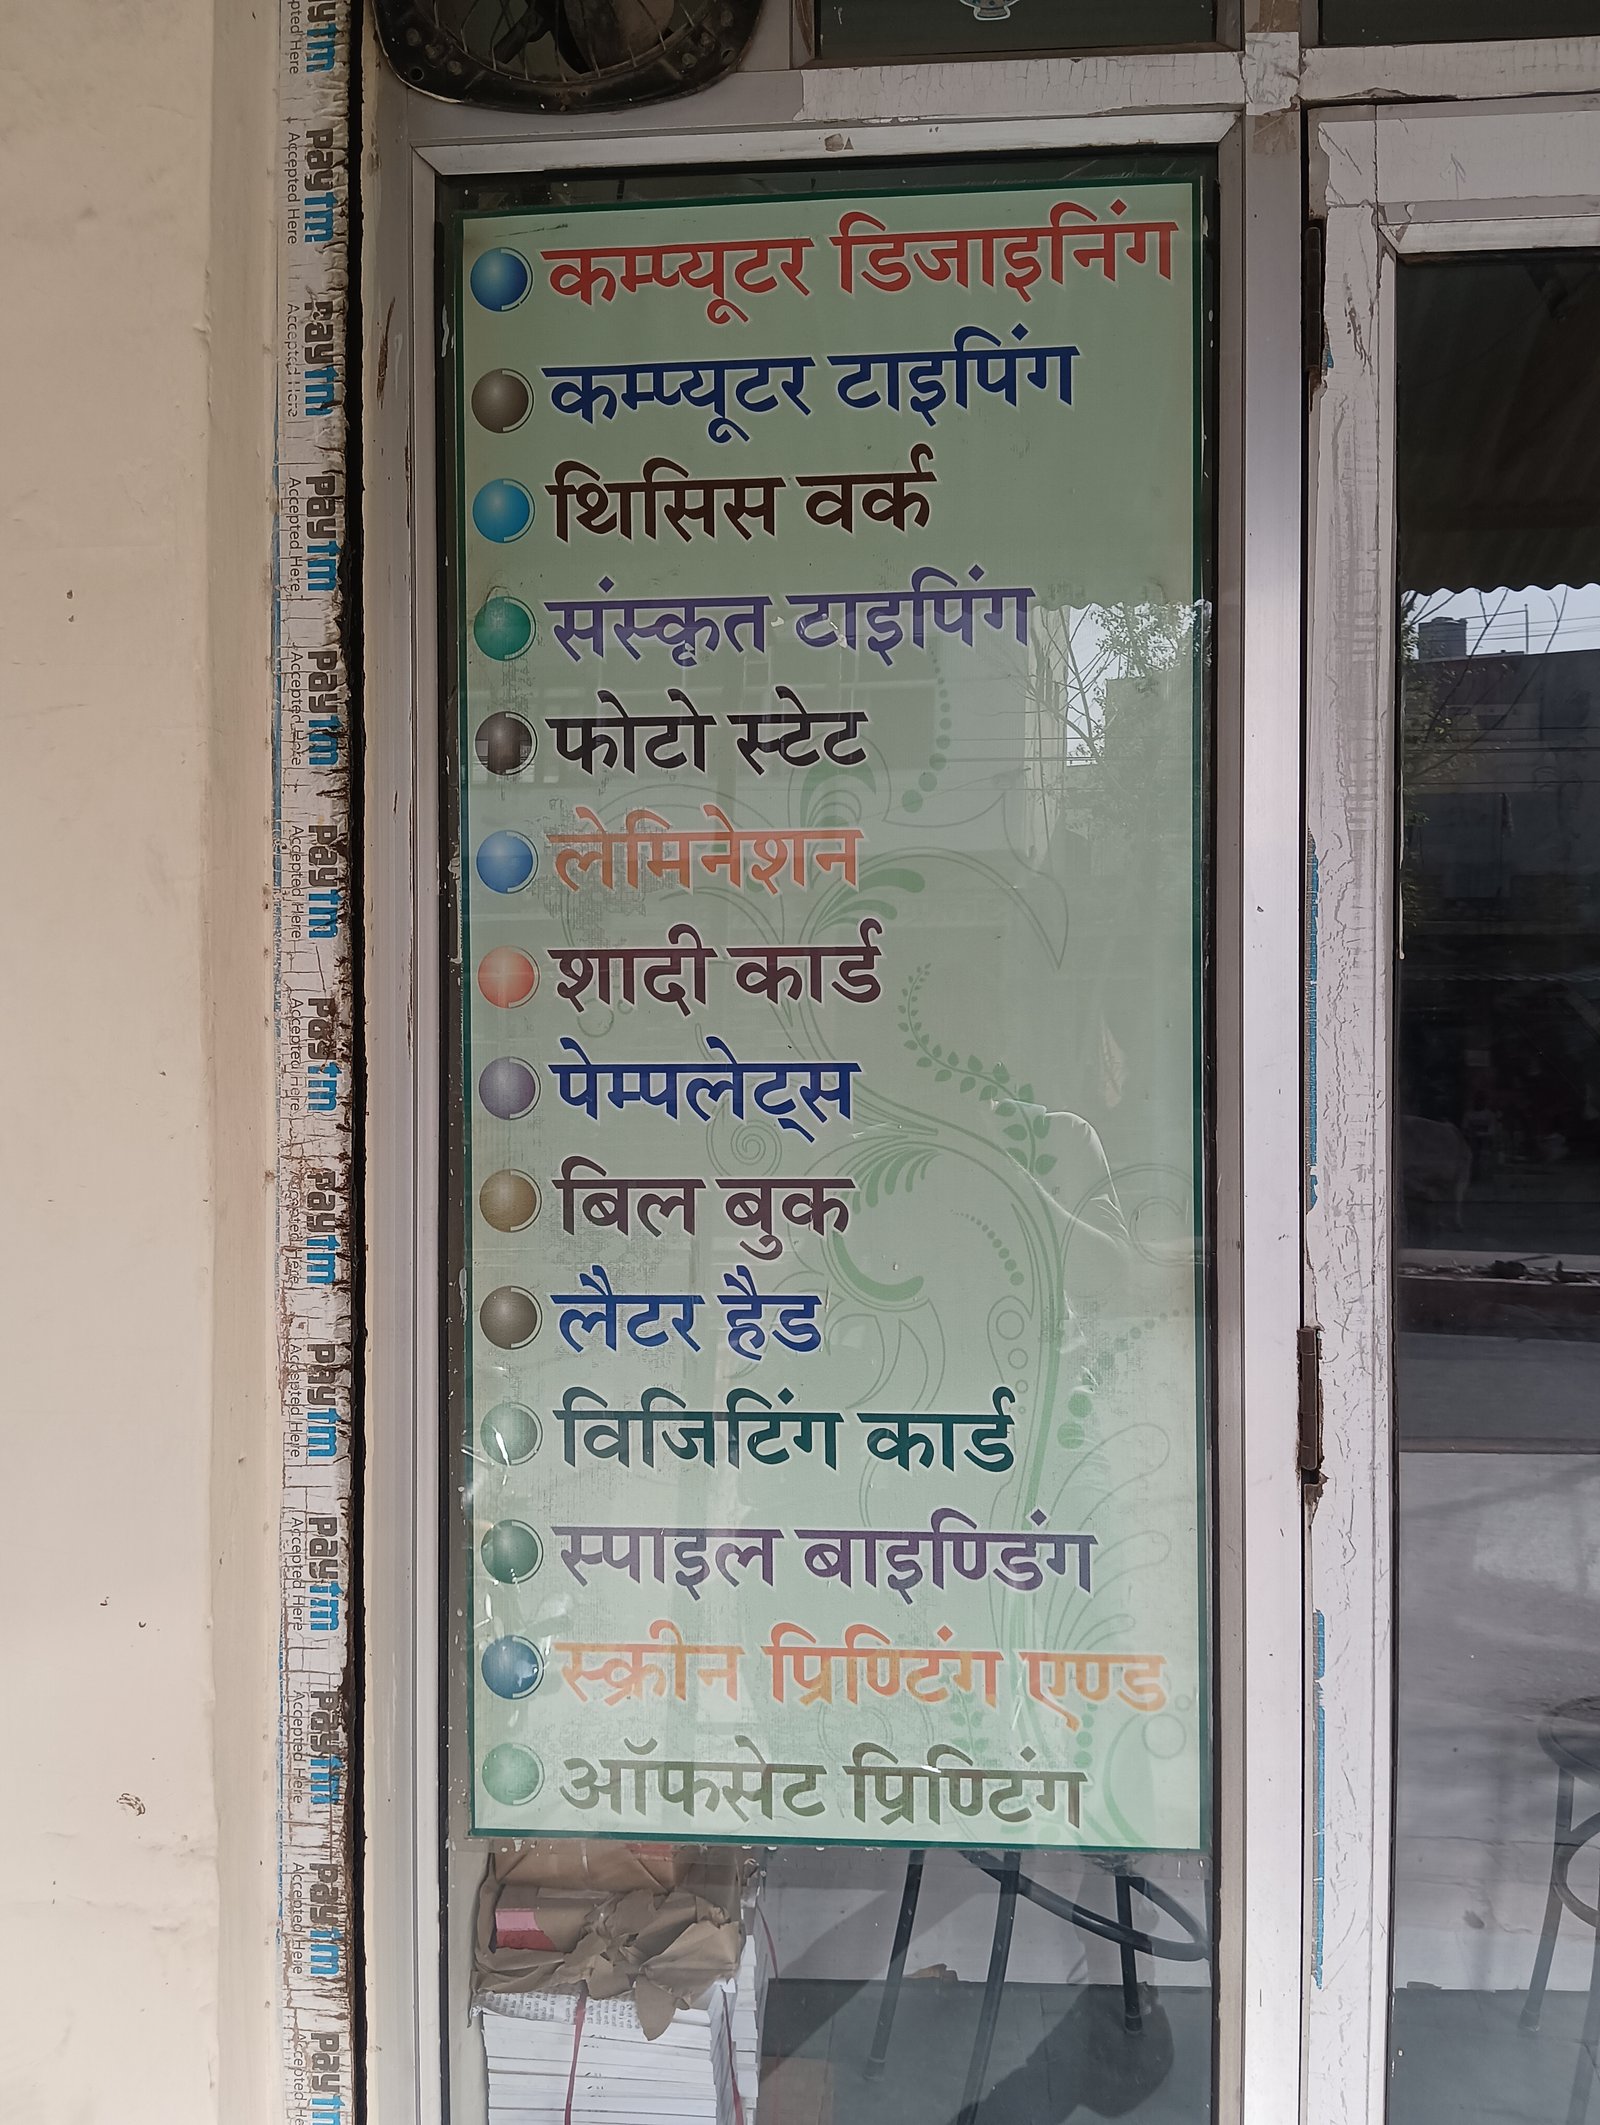 कम्प्यूटर डिजाइनिंग
कम्प्यूटर टाइपिंग
थिसिस वर्क
संस्कृत टाइपिंग
फोटो स्टेट
लेमिनेशन
शादी कार्ड
पेम्पलेट्स
बिल बुक
लैटर हैड
विजिटिंग कार्ड
स्पाइल बाइण्डिंग
स्क्रीन प्रिण्टिंग एण्ड
ऑफसेट प्रिण्टिंग
paytm
Accepted Here
paytm
Accepted Here
paytm
Accepted Here
paytm
Accepted Here
paytm
Accepted Here
paytm
Accepted Here
paytm
Accepted Here
paytm
Accepted Here
paytm
Accepted Here
paytm
Accepted Here
paytm
Accepted Here
paytm
Accepted Here